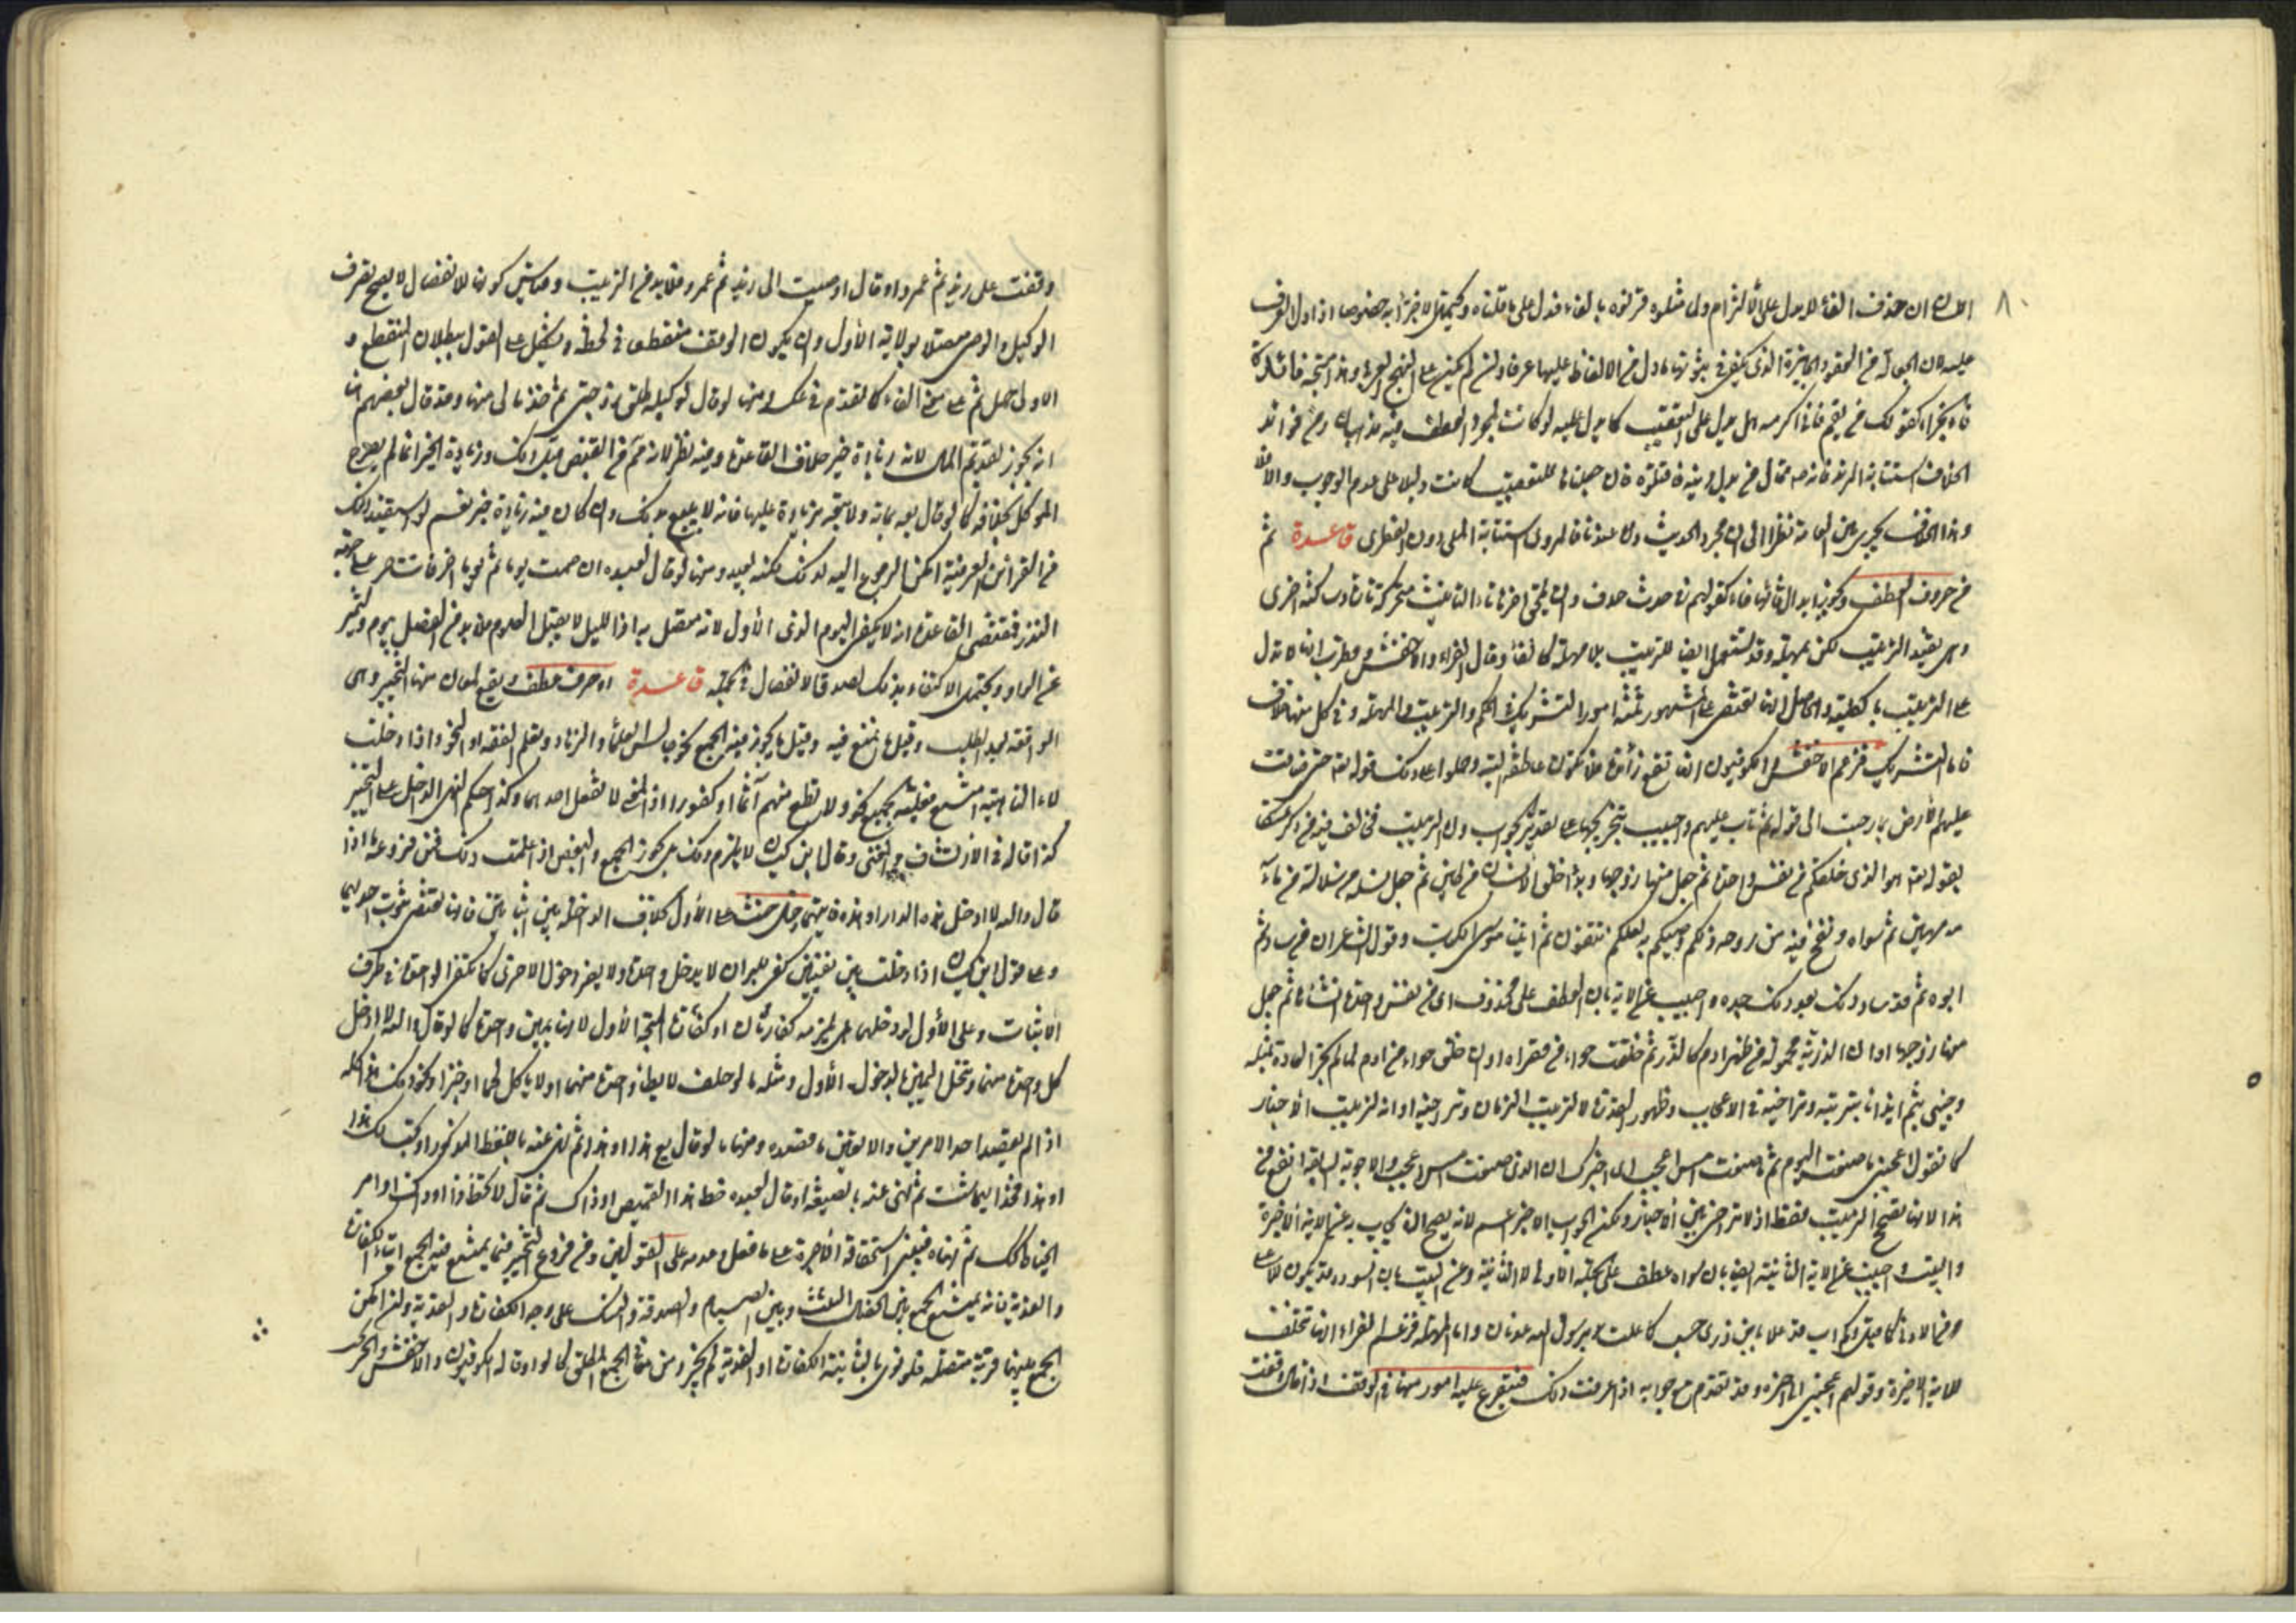 ٨٠
ان حذف الفاء لا يدل على الالتزام ولى مثلوه قرنوه بالفاء فدل على ما قلناه ويحتمل الاجزاء به خصوصا اذا دل العرف
عليه لان الجعالة من العقود الجايزة الذى يكفى في ثبوتها ما دل من الالفاظ عليها عرفا وان لم يكن على النهج العربى وهذا متجه
فاء الجزاء كقولك من يقم فانى اكرمه هل يدل على التعقيب كما يدل عليه لو كانت لمجرد العطف فيه مذهبان ومن فوائد
الخلاف استتابة المرتد فانه صم قال من بدل دينه فاقتلوه فان جعلناها للتعقيب كانت دليلا على عدم الوجوب والا فلا
وهذا الخلاف يجرى بين العامة نظرا الى مجرد الحديث واما عندنا فالمروى استتابة الملى دون الفطرى قاعدة ثم
من حروف العطف ويجوز ابدال ثائها فاء كقولهم في جدث جدف وان يلحق اخرها تاء التانيث متحركة تارة وساكنة اخرى
وهى تفيد الترتيب لكن بمهلة وقد تستعمل ايضا للترتيب بلا مهلة كالفاء وقال الفراء والاخفش وقطرب انها لا تدل
على الترتيب بالكلية والحاصل انها تقتضى على المشهور ثلثة امور التشريك في الحكم والترتيب والمهلة وفى كل منها خلاف
فاما التشريك فزعم الاخفش والكوفيون انها تقع زائدة فلا تكون عاطفة البتة وحملوا على ذلك قوله تعالى حتى ضاقت
عليهم الارض بما رحبت الى قوله ثم تاب عليهم واجيب بتخريجها على تقدير الجواب واما الترتيب فخالف فيه من ذكر متمسكا
بقوله تعالى هو الذى خلقكم من نفس واحدة ثم جعل منها زوجها وبدأ خلق الانسان من طين ثم جعل نسله من سلالة من ماء
مهين ثم سواه ونفخ فيه من روحه ذلكم وصيكم به لعلكم تتقون ثم اتينا موسى الكتاب وقول الشاعر ان من ساد ثم
ابوه ثم قد ساد ذلك بعد ذلك جده واجيب عن الاية بان العطف على محذوف اى من نفس واحدة انشأها ثم جعل
منها زوجها او ان الذرية مخرجة من ظهر ادم كالذر ثم خلقت حواء من قصيراه او ان خلق حواء من ادم لما لم تجر العادة بمثله
وجيئ بثم ايذانا بترتيبه وتراخيه في الاعجاب وظهور القدرة لا لترتيب الزمان وتراخيه او انه لترتيب الاخبار
كما تقول اعجبنى ما صنعت اليوم ثم ما صنعت امس اعجب اى ثم اخبرك ان الذى صنعته امس اعجب والاجوبة السابقة انفع من
هذا لانها تصحح الترتيب فقط اذ لا تراخى بين الاخبارين ولكن الجواب الاخير اعم لانه يصح ان يجاب به عن الاية الاخيرة
والبيت واجيب عن الاية الثانية ايضا بان سواه عطف على الجملة الاولى لا الثانية وعن البيت بان السودد قد يكون للابناء
كم اب قد علا بابن ذرى حسب كما علت برسول الله عدنان واما المهلة فزعم الفراء انها تتخلف
للاية الاخيرة وقولهم اعجبنى الى اخره وقد تقدم مع جوابه اذا عرفت ذلك فيتفرع عليه امور منها في الوقف اذا قال وقفت
وقفت على زيد ثم عمرو او قال اوصيت الى زيد ثم عمرو فلا بد من الترتيب وقياس كونها للانفصال لا يصح تصرف
الوكيل والوصى متصلا بولاية الأول وان يكون الوقف منقطعا في لحظة ويشكل على القول ببطلان المنقطع و
الاولى حمل ثم على معنى الفاء كما تقدم في عكسه ومنها لو قال لوكيله طلق زوجتى ثم خذ مالى منها وقد قال بعضهم
انه يجوز تقديم المال لانه زيادة خير خلاف القاعدة وفيه نظر لانه ثم من القبض قبل ذلك وزيادة الخير انما لم يصرح
الموكل بخلافه كما لو قال بعه بماية ولا تبعه بزيادة عليها فانه لا يبيع بذلك وان كان فيه زيادة خير نعم لو استفيد ذلك
من القرائن العرفية امكن الرجوع اليه لذلك لكنه بعيد ومنها لو قال لعبده ان صمت يوما ثم يوما اخر فانت حر على جهة
النذر فمقتضى القاعدة انه لا يكفى اليوم الذى الأول لانه متصل به اذ الليل لا يقبل الصوم فلا بد من الفصل بيوم وليتميز
عن الواو ويحتمل الاكتفاء بذلك لصدق الانفصال في الجملة قاعدة او حرف عطف ويقع لمعان منها التخيير وهى
الواقعة بعد الطلب وقيل ما يمتنع فيه وقيل ما يجوز فيه الجمع نحو جالس العلماء او الزهاد وتعلم الفقه او النحو واذا دخلت
لاء الناهية امتنع فعل الجميع نحو ولا تطع منهم آثما او كفورا اذ المعنى لا تفعل احدهما وكذا حكم النهى الداخل على التخيير
كذا قاله في الارتشاف والمغنى وقال ابن كيسان لا يلزم ذلك بل يجوز الجمع والبعض اذا علمت ذلك فمن فروعه ما اذا
قال والله لا ادخل هذه الدار او هذه فايتهما دخل حنث على الأول بخلاف الداخلة بين اثباتين فانها تقتضى ثبوت احدهما
وعلى قول ابن كيسان اذا دخلت بين نفيين كفى للبر ان لا يدخل واحدة ولا يضر دخول الاخرى كما تكفى الواحدة في طرف
الاثبات وعلى الأول لو دخلهما هل يلزمه كفارتان او كفارة المتجه الأول لانها يمين واحدة كما لو قال والله لا ادخل
كل واحدة منهما وتنحل اليمين بالدخول الأول ومثله ما لو حلف لا يطأ واحدة منهما او لا ياكل لحما او خبزا ونحو ذلك هذا كله
اذا لم يقصد احد الامرين والا تعين ما قصده ومنها ما لو قال بع هذا او هذا ثم نهى عنه باللفظ المذكور او كتب لك هذا
او هذا فخذ ايهما شئت ثم نهى عنه بالصيغة او قال لعبده خط هذا القميص او ذاك ثم قال لا تخط ذا او ذاك او امر
الخياط بذلك ثم نهاه فينبنى استحقاقه الاجرة على ما فعل وعدمه على القولين ومن فروع التخيير فيما يمتنع فيه الجمع ايتاء الكفارة
والفدية فانه يمتنع الجمع بين الخصال الثلاث وبين الصيام والصدقة والنسك على وجه الكفارة والفدية وان امكن
الجمع بينهما قربة مستقلة فلو نوى بالثانية الكفارة او الفدية لم يجز ومن معانى الجمع المطلق كالواو قاله الكوفيون والاخفش والجرمى